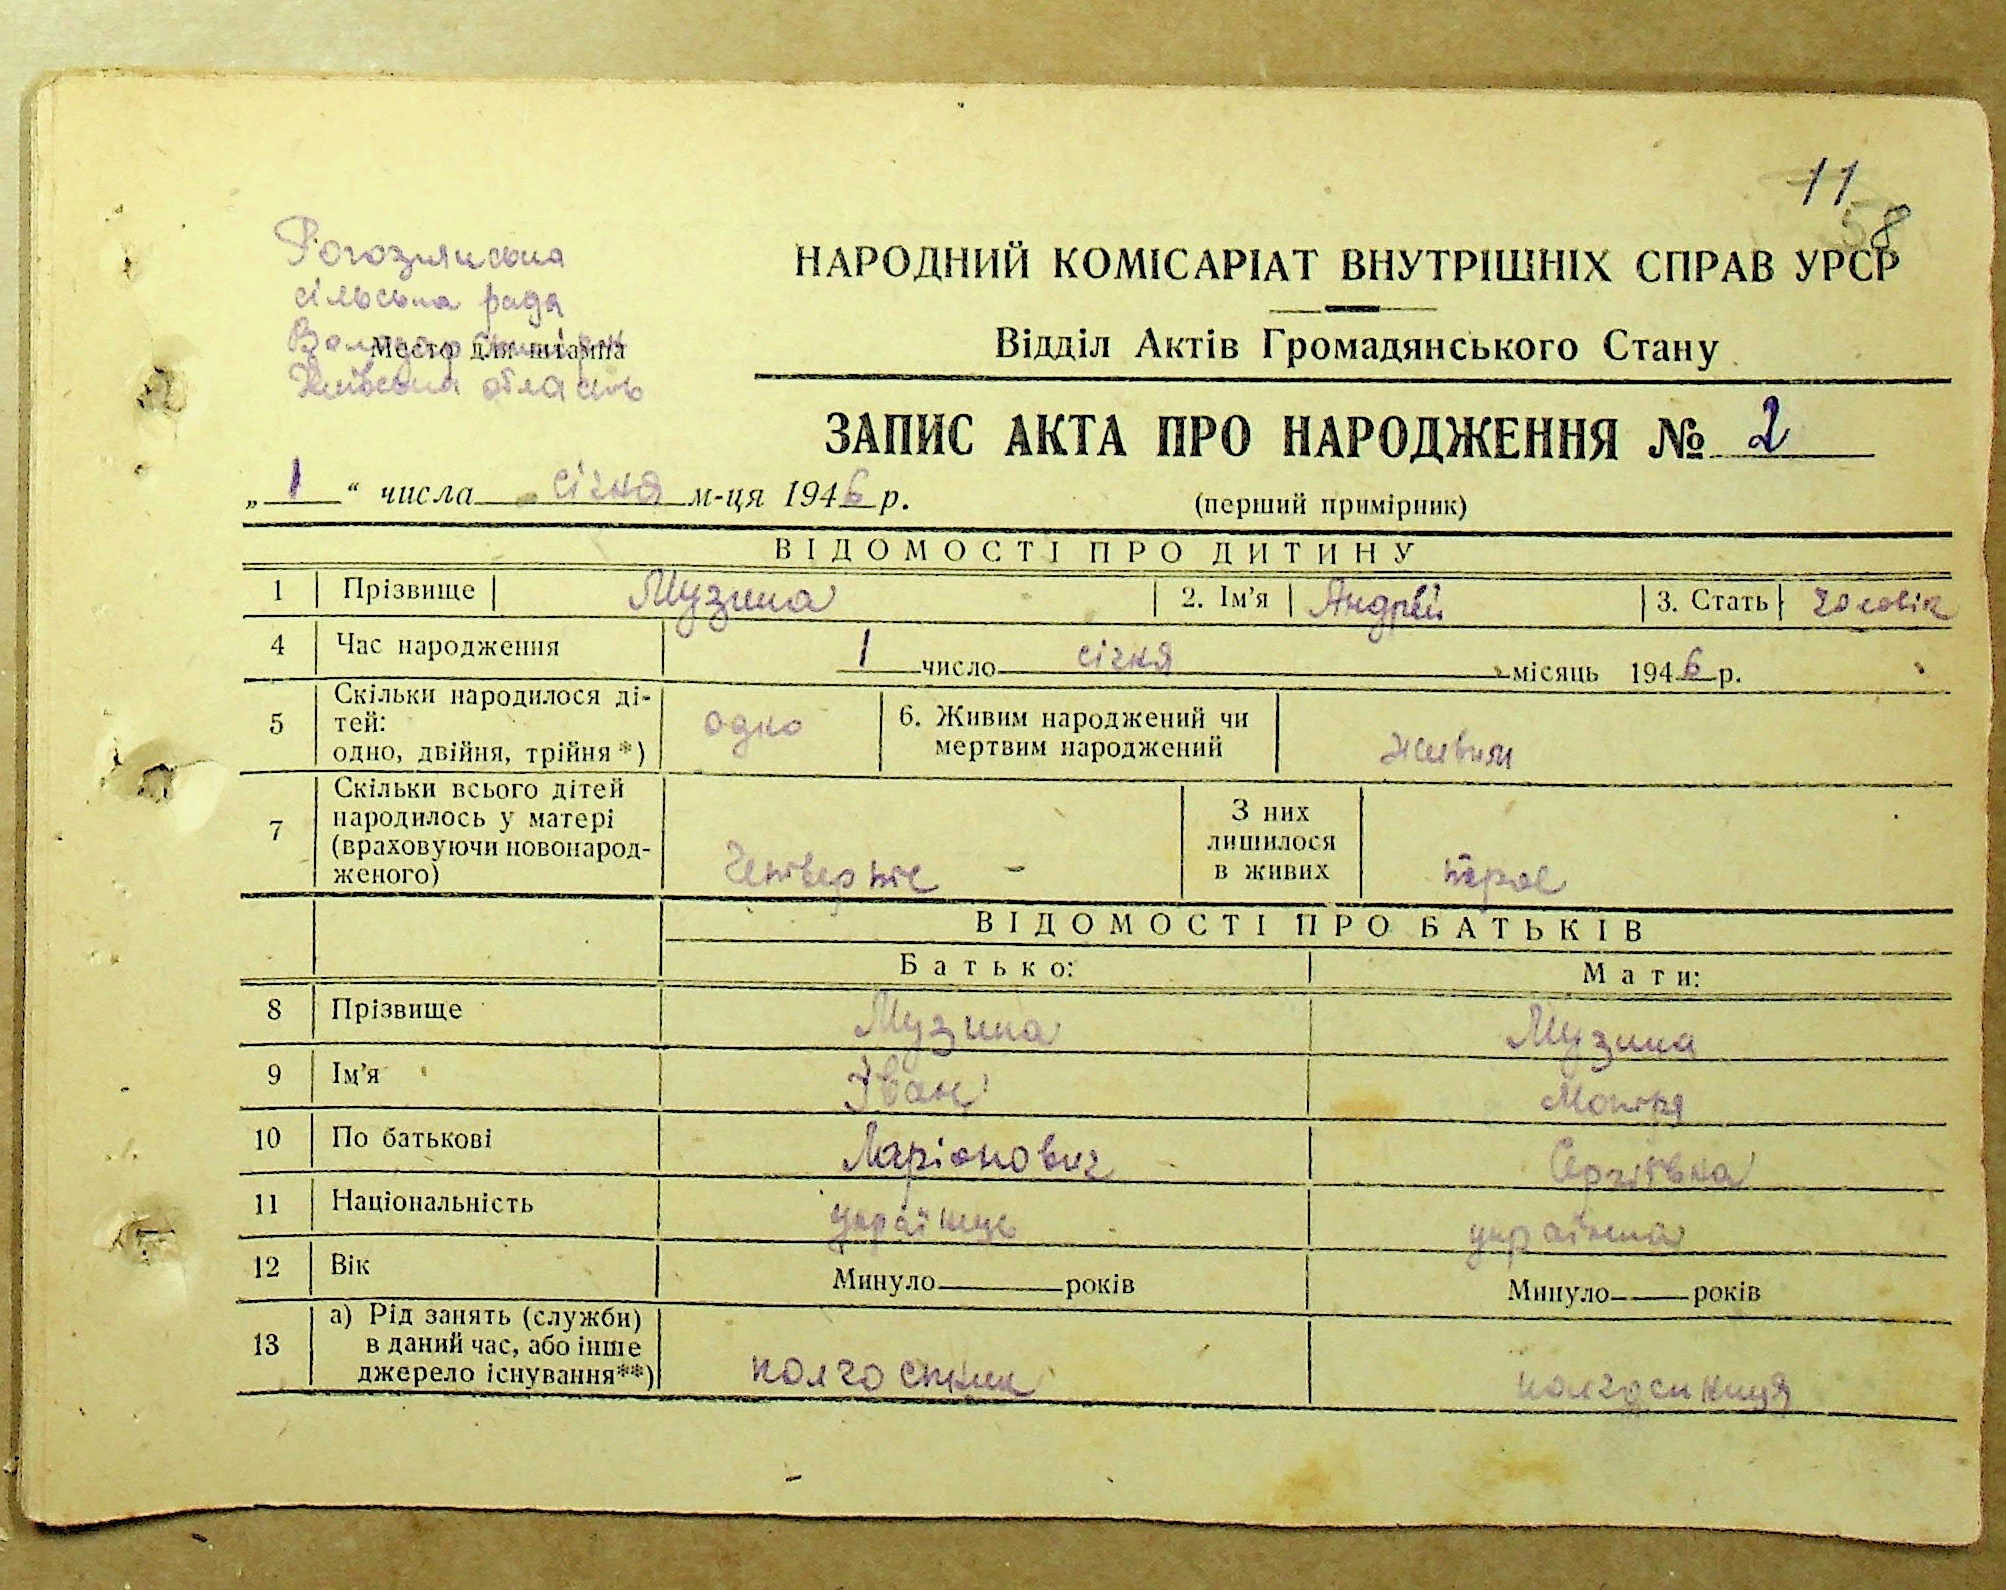 11
58
Рогознянська
сільська рада
Место для штампа
Київська область
НАРОДНИЙ КОМІСАРІАТ ВНУТРІШНІХ СПРАВ УРСР
Відділ Актів Громадянського Стану
ЗАПИС АКТА ПРО НАРОДЖЕННЯ № 2
„ 1 “ числа січня м-ця 1946 р.
(перший примірник)
ВІДОМОСТІ ПРО ДИТИНУ
1 Прізвище Музика 2. Ім'я Андрій 3. Стать чоловік
4 Час народження 1 число січня місяць 1946 р.
5 Скільки народилося ді-
тей:
одно, двійня, трійня*) одно 6. Живим народжений чи
мертвим народжений живим
7 Скільки всього дітей
народилось у матері
(враховуючи новонарод-
женого) четверте З них
лишилося
в живих троє
ВІДОМОСТІ ПРО БАТЬКІВ
Батько: Мати:
8 Прізвище Музика Музика
9 Ім'я Іван Мотря
10 По батькові Ларіонович Сергіївна
11 Національність українець українка
12 Вік Минуло років Минуло років
13 а) Рід занять (служби)
в даний час, або інше
джерело існування**) колгоспник колгоспниця